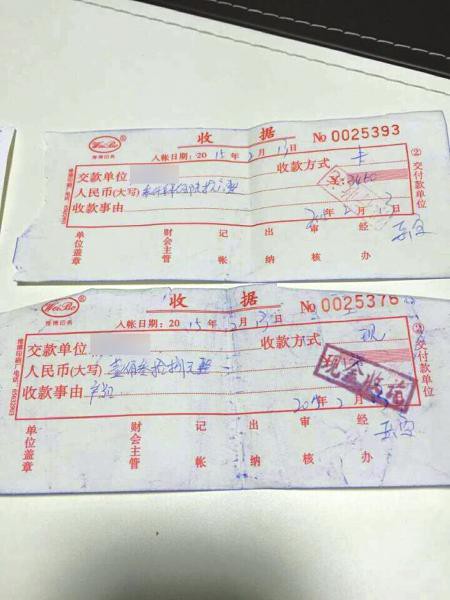 WeiBo®
收 据
No 0025393
维博印务
入帐日期: 2015 年 2 月 13 日
交款单位
收款方式 卡
人民币(大写)
¥:3460
收款事由
2015 2 13
②交付款单位
单位盖章
财会主管
记帐
出纳
审核
经办
WeiBo®
收 据
No 0025376
维博印务
入帐日期: 2015 年 2 月 13 日
交款单位
收款方式 现
人民币(大写) 壹佰叁拾捌元整
现金收讫
收款事由
②交付款单位
单位盖章
财会主管
记帐
出纳
审核
经办